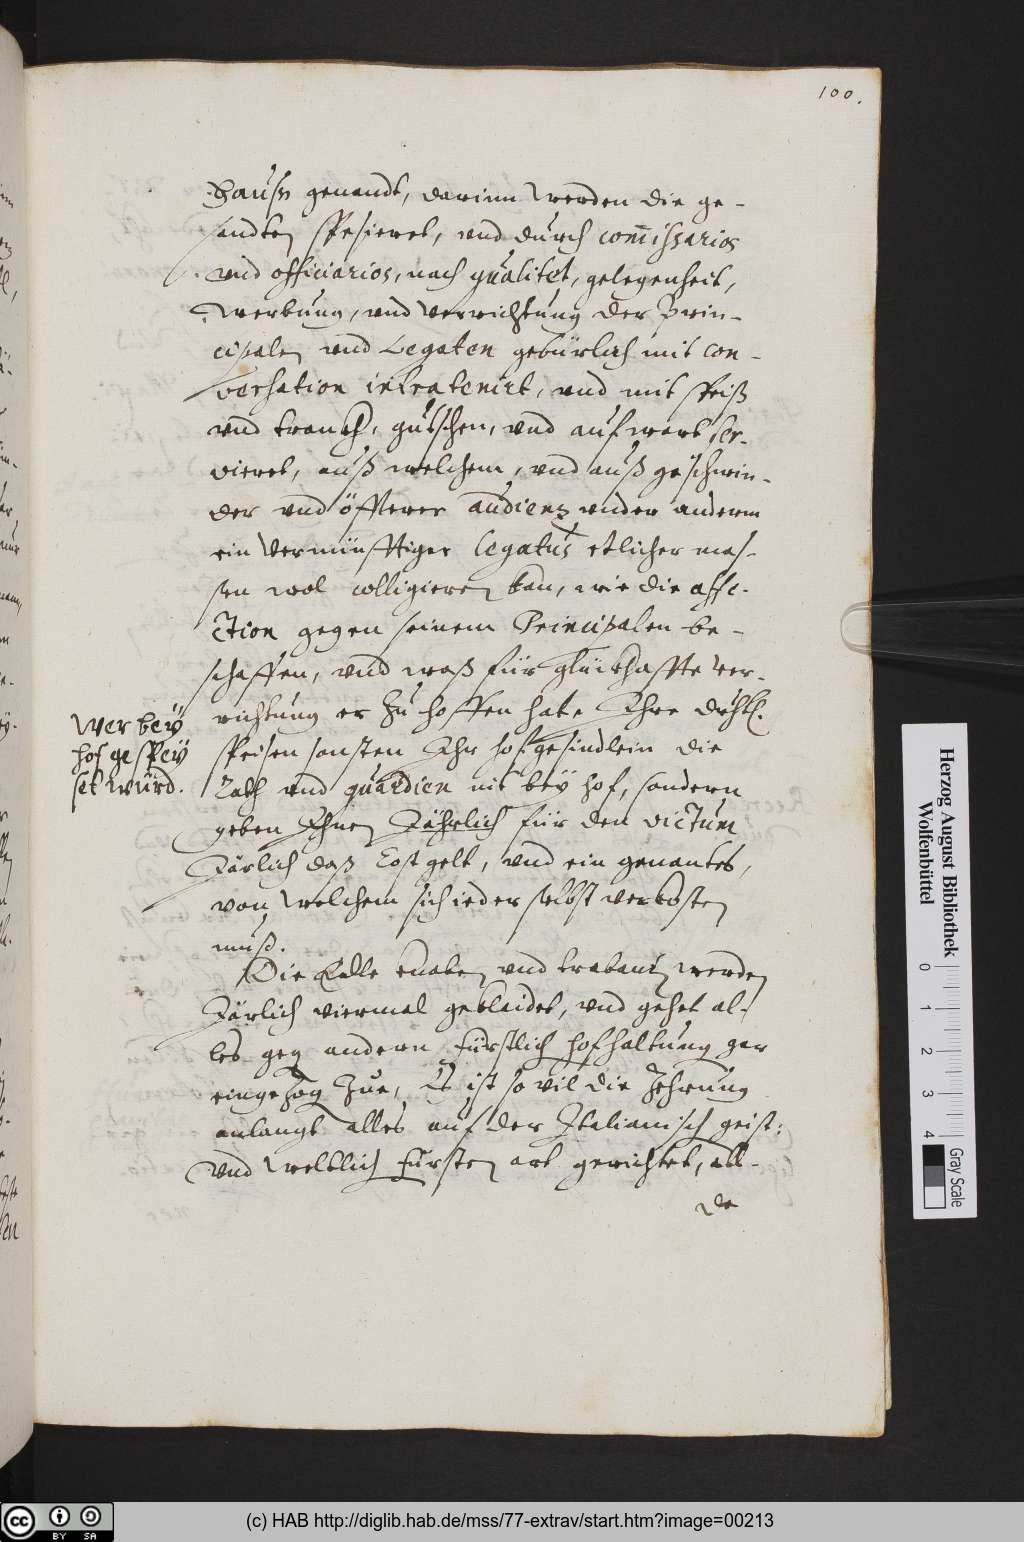 100.
Hauß genandt, darinn werden die ge-
sandten spesieret, und durch com̄issarios
und officiarios, nach qualitet, gelegenheit,
werbung, und verrichtung der Prin-
cipalen und Legaten gebürlich mit con-
versation intratenirt, und mit speiß
und tranckh, gutschen, und aufwart ser-
vieret, auß welchem, und auß geschwin-
der und öffterer audienz under anderm
ein vernünfftiger legatus etlicher mas-
sen wol colligieren kan, wie die affe-
ction gegen seinem Principalen be-
schaffen, und waß für glückhaffte ver-
richtung er zu hoffen hat. Ihre Drhtl.
speisen sonsten Ihr hofgesindlein die
Räth und guardien nit bey hof, sondern
geben Ihnen Jährlich für den victum
Järlich daß Costgelt, und ein genantes,
von welchem sich ieder selbst verkosten
muß.
Die Edle knaben und trabanten werden
Järlich viermal geklaidet, und gehet al-
les gegen andern fürstlich hofhaltung gar
eingezogen zue, Es ist so vil die Zehrung
anlangt alles auf der Italianisch geist:
und weltlich fürsten art gerichtet, all-
da
Wer bey
hof gespey
set würd.
Herzog August Bibliothek
Wolfenbüttel
0 1 2 3 4
Gray Scale
cc BY SA
(c) HAB http://diglib.hab.de/mss/77-extrav/start.htm?image=00213